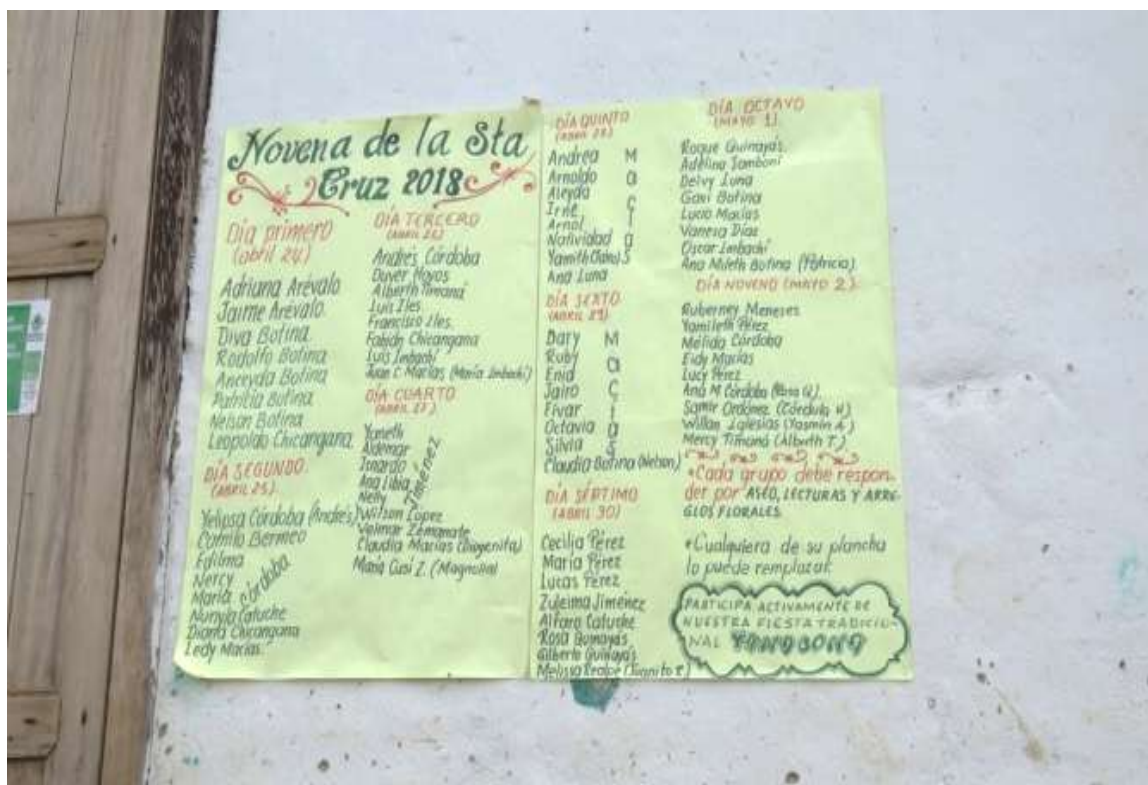 Novena de la Sta
Cruz 2018
Día primero
(abril 24)
Adriana Arévalo
Jaime Arevalo
Diva Botina
Rodolfo Botina
Anceyda Botina
Patricia Botina
Nelson Botina
Leopoldo Chicangana
DÍA SEGUNDO
(ABRIL 25)
Yelipsa Córdoba (Andrés)
Camilo Bermeo
Edilma
Nercy
María Córdoba
Nuryla Catuche
Diana Chicangana
Ledy Macías
DÍA TERCERO
(ABRIL 26)
Andrés Córdoba
Duver Hoyos
Alberth Timaná
Luis Iles
Francisco Iles
Fabián Chicangana
Luis Imbachí
Juan C Macías (María Imbachí)
DÍA CUARTO
(ABRIL 27)
Yaneth
Aldemar
Isnardo
Ana Libia
Nelly
Jiménez
Wilson López
Velmar Zemanate
Claudia Macías
María Cusi Z. (Magnolia)
DÍA QUINTO
(ABRIL 28)
Andrea
Arnoldo
Aleyda
Irne
Arnol
Natividad
Macías
Yamith
Ana Luna
DÍA SEXTO
(ABRIL 29)
Dary
Ruby
Enid
Jairo
Eivar
Octavia
Silvia
Macías
Claudia Botina (Nelson)
DÍA SÉPTIMO
(ABRIL 30)
Cecilia Pérez
María Pérez
Lucas Pérez
Zuleima Jiménez
Alfaro Catuche
Rosa Quinayás
Gilberto Quinayás
Melissa Realpe
DÍA OCTAVO
(MAYO 1)
Roque Quinayás
Adelina Jamboní
Deivy Luna
Gavi Botina
Lucio Macías
Vanesa Días
Oscar Imbachí
Ana Mileth Botina (Patricia)
DÍA NOVENO (MAYO 2)
Ruberney Meneses
Yamileth Pérez
Mélida Córdoba
Eidy Macías
Lucy Pérez
Ana M Córdoba
Samir Ordóñez
Willan Iglesias (Yasmín A.)
Mercy Timaná (Alberth T.)
*Cada grupo debe respon-
der por ASEO, LECTURAS Y ARRE-
GLOS FLORALES
*Cualquiera de su plancha
lo puede remplazar
PARTICIPA ACTIVAMENTE DE
NUESTRA FIESTA TRADICIO-
NAL